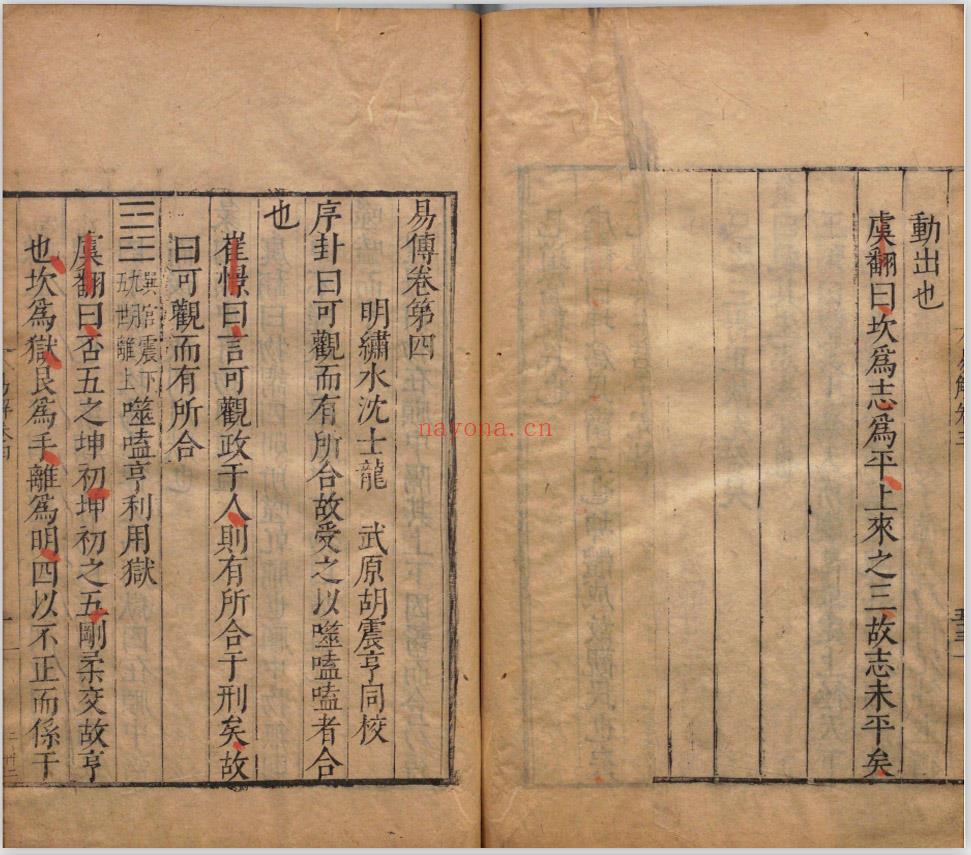 動出也
虞翻曰坎爲志爲平上來之三故志未平矣
易傳卷第四
明繡水沈士龍 武原胡震亨同校
序卦曰可觀而有所合故受之以噬嗑嗑者合
也
崔憬曰言可觀政于人則有所合于刑矣故
曰可觀而有所合
巽宮震下
五世離上
噬嗑亨利用獄
虞翻曰否五之坤初坤初之五剛柔交故亨
也坎爲獄艮爲手離爲明四以不正而係于
nayona.cn